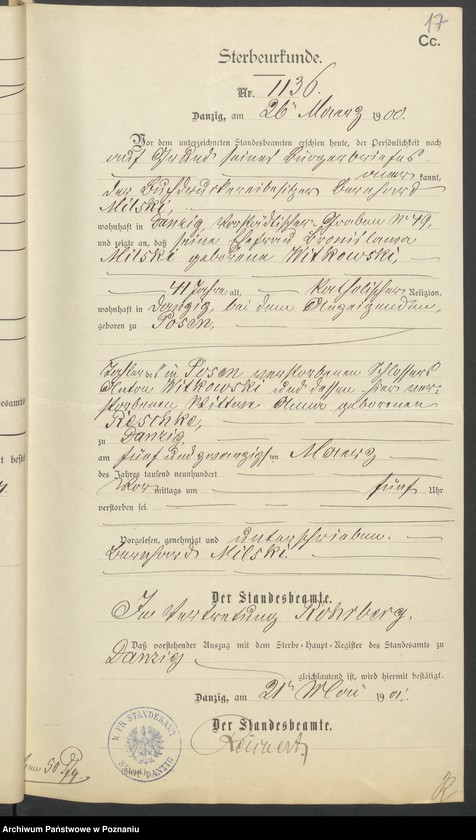 17
Cc.
Sterbeurkunde.
Nr. 1136.
Danzig, am 26t Maerz 1900.
Vor dem unterzeichneten Standesbeamten erschien heute, der Persönlichkeit nach
auf Grund seines Bürgerbriefes
aner kannt,
der Buchdruckereibesitzer Bernhard
Milski,
wohnhaft in Danzig, Vorstädtischer Graben No 49,
und zeigte an, daß seine Ehefrau Bronislawa
Milski geborene Witkowski,
41 Jahre alt, katholischer Religion,
wohnhaft in Danzig, bei dem Anzeigenden,
geboren zu Posen,
Tochter des in Posen verstorbenen Schlossers
Anton Witkowski und dessen hier ver-
storbenen Wittwe Anna geborenen
Reschke,
zu Danzig,
am fünf und zwanzigsten Maerz
des Jahres tausend neunhundert
Vor mittags um fünf Uhr
verstorben sei
Vorgelesen, genehmigt und unterschrieben.
Bernhard Milski.
Der Standesbeamte.
In Vertretung Rohrberg.
Daß vorstehender Auszug mit dem Sterbe-Haupt-Register des Standesamts zu
Danzig
gleichlautend ist, wird hiermit bestätigt.
Danzig, am 21t Mai 1901.
Der Standesbeamte.
K. PR. STANDESAMT
DANZIG
50 Pfg
Archiwum Państwowe w Poznaniu